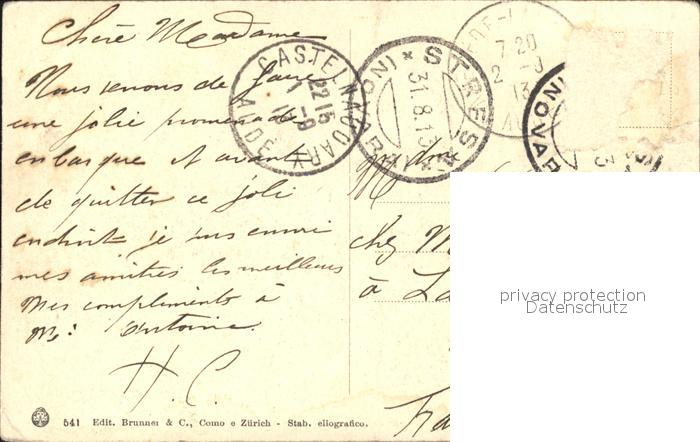 Chère Madame
Nous venons de faire
une jolie promenade
en barque et avant
de quitter ce joli
endroit je vous envoie
mes amitiés les meilleures
Mes compliments à
Mr: Antoine.
H. C.
CASTELNAUDARY
AUDE
22 15
STRESA
31.8.13
(NOVARA)
7 20
13
NOVARA
chez M
à La
privacy protection
Datenschutz
541 Edit. Brunner & C., Como e Zürich - Stab. eliografico.